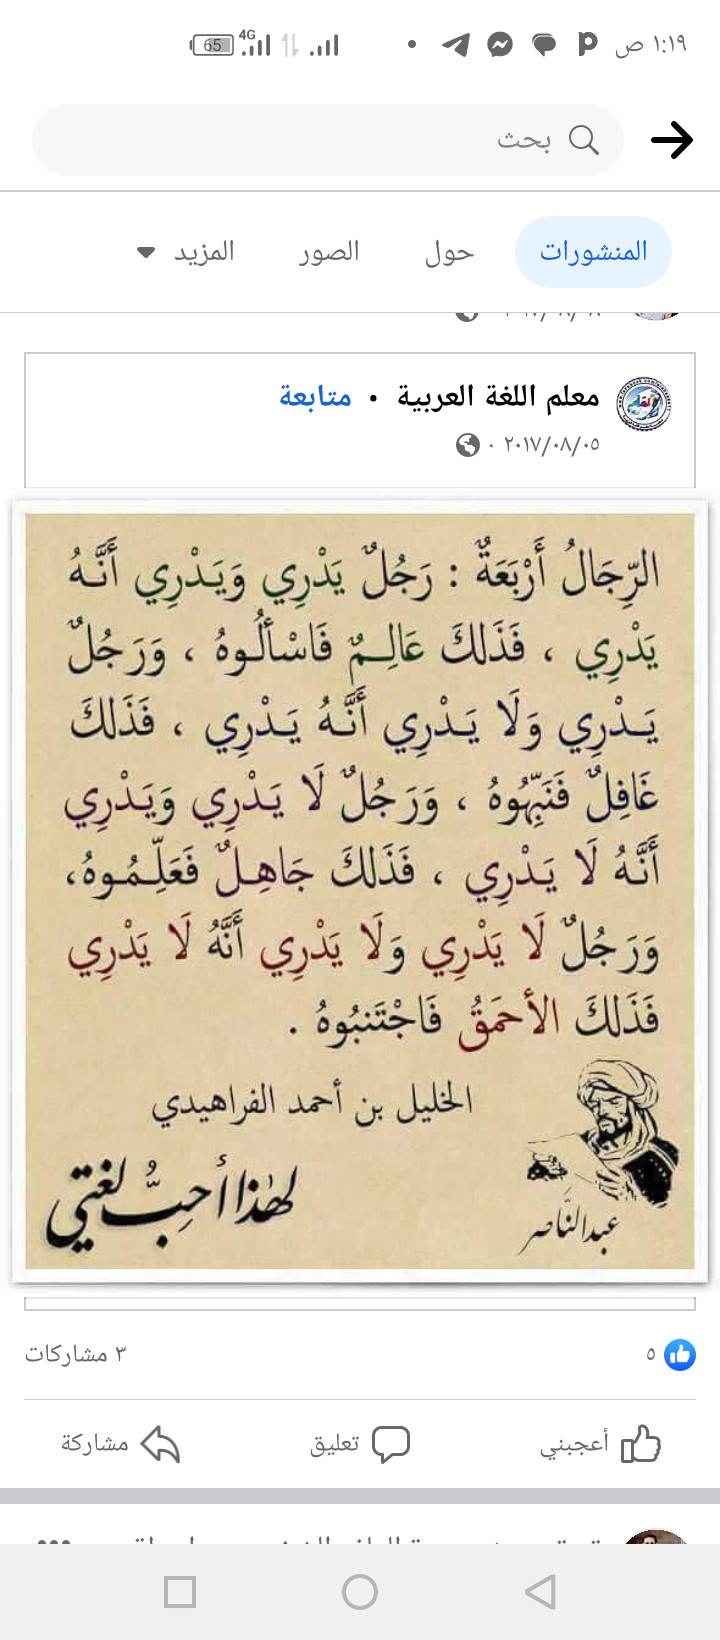 ١:١٩ ص
4G
65
بحث
المنشورات
حول
الصور
المزيد
معلم اللغة العربية • متابعة
٢٠١٧/٠٨/٠٥
الرِّجَالُ أَرْبَعَةٌ : رَجُلٌ يَدْرِي وَيَدْرِي أَنَّهُ
يَدْرِي ، فَذَلكَ عَالِمٌ فَاسْأَلُوهُ ، وَرَجُلٌ
يَدْرِي وَلَا يَدْرِي أَنَّهُ يَدْرِي ، فَذَلكَ
غَافِلٌ فَنَبِّهُوهُ ، وَرَجُلٌ لَا يَدْرِي وَيَدْرِي
أَنَّهُ لَا يَدْرِي ، فَذَلكَ جَاهِلٌ فَعَلِّمُوهُ،
وَرَجُلٌ لَا يَدْرِي وَلَا يَدْرِي أَنَّهُ لَا يَدْرِي
فَذَلكَ الأَحمَقُ فَاجْتَنبُوهُ .
الخليل بن أحمد الفراهيدي
لهٰذا أحِبُّ لغتي
عبدالنَّاصر
٥
٣ مشاركات
أعجبني
تعليق
مشاركة